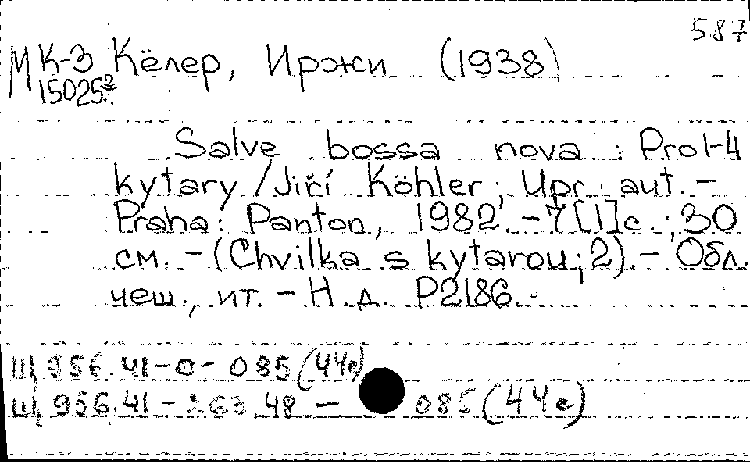 587
М К-3 Кёлер, Иржи (1938)
15025²
Salve bossa nova : Pro 1-4
kytary / Jiří Köhler; Upr. aut. –
Praha : Panton, 1982. – 7[1]с.; 30
см. – (Chvilka s kytarou; 2). – Обл.
чеш., ит. – Н.д. P2186.
Щ 956.41-0-085(44е)
Щ 956.41 – 263.48 – 085(44е)